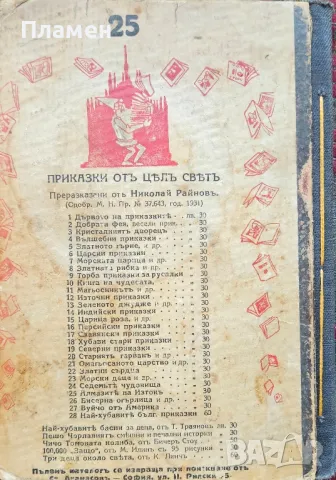 Пламен
25
ПРИКАЗКИ ОТЪ ЦѢЛЪ СВѢТЪ
Преразказани отъ Николай Райновъ.
(Одобр. М. Н. Пр. № 37,643, год. 1931)
1 Дървото на приказките . лв. 30
2 Добрата фея, весели прик. . 30
3 Кристалниятъ дворецъ . 30
4 Вълшебни приказки . 30
5 Златното гърне, и др. . 30
6 Царски приказки . 30
7 Морската царица и др. . 30
8 Златната рибка и др. . 30
9 Торба приказки за русалки 30
10 Книга на чудесата . 30
11 Магьосникътъ и др. . 30
12 Източни приказки . 30
13 Зеленото джудже и др. . 30
14 Индийски приказки . 30
15 Царица роза, и др. . 30
16 Персийски приказки . 30
17 Славянски приказки . 30
18 Хубави стари приказки . 30
19 Северни приказки . 30
20 Стариятъ гарванъ и др. . 30
21 Омагьосаното царство и др. 30
22 Златни сърдца . 30
23 Морски деца и др. . 30
24 Седемтѣ чудовища . 30
25 Алмазитѣ на Изгонъ . 30
26 Бисерна огърлица и др. . 30
27 Вуйчо отъ Америка . 30
28 Най-хубавитѣ бълг. приказки 60
Най-хубавитѣ басни за деца, отъ Т. Траяновъ лв. 30
Пешо Чорлавиятъ смешни и печални истории 30
Чичо Томовата колиба, отъ Бичеръ Стоу . 30
100,000 „Защо", отъ М. Илинъ съ 95 рисунки 30
Три деца около свѣта, отъ К.
Пъленъ каталогъ се изпраща при поискване отъ
Ст. Атанасовъ – София, ул. П.
bazar